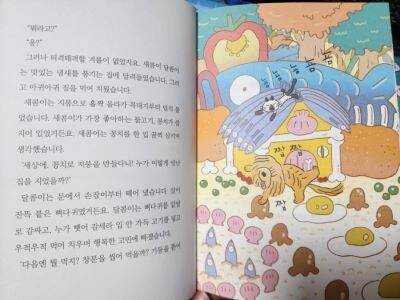 "뭐라고?"
"응?"
그러나 티격태격할 겨를이 없었지요. 새콤이 달콤이
는 맛있는 냄새를 풍기는 집에 달려들었습니다. 그러
고 아귀아귀 집을 먹어 치웠습니다.
새콤이는 지붕으로 훌쩍 올라가
습니다. 새콤이가 가장 좋아하는 물고기, 꽁치가
지어 있었거든요. 새콤이는 꽁치를 한 입 꿀꺽 삼키며
생각했습니다.
'세상에, 꽁치로 지붕을 만들다니! 누가 이렇게 멋난
집을 지었을까?'
달콤이는 문에서 손잡이부터 떼어 냈습니다. 살이
잔뜩 붙은 뼈다귀였거든요. 달콤이는 뼈다귀를
로 감싸고, 누가 뺏어 갈세라 입 안 가득 고기를 넣고
우적우적 먹어 치우며 행복한 고민에 빠졌습니다.
'다음엔 뭘 먹지? 창문을 씹어 먹을까? 기둥을 뜯어
냠
냠
쩝 쩝
쩝